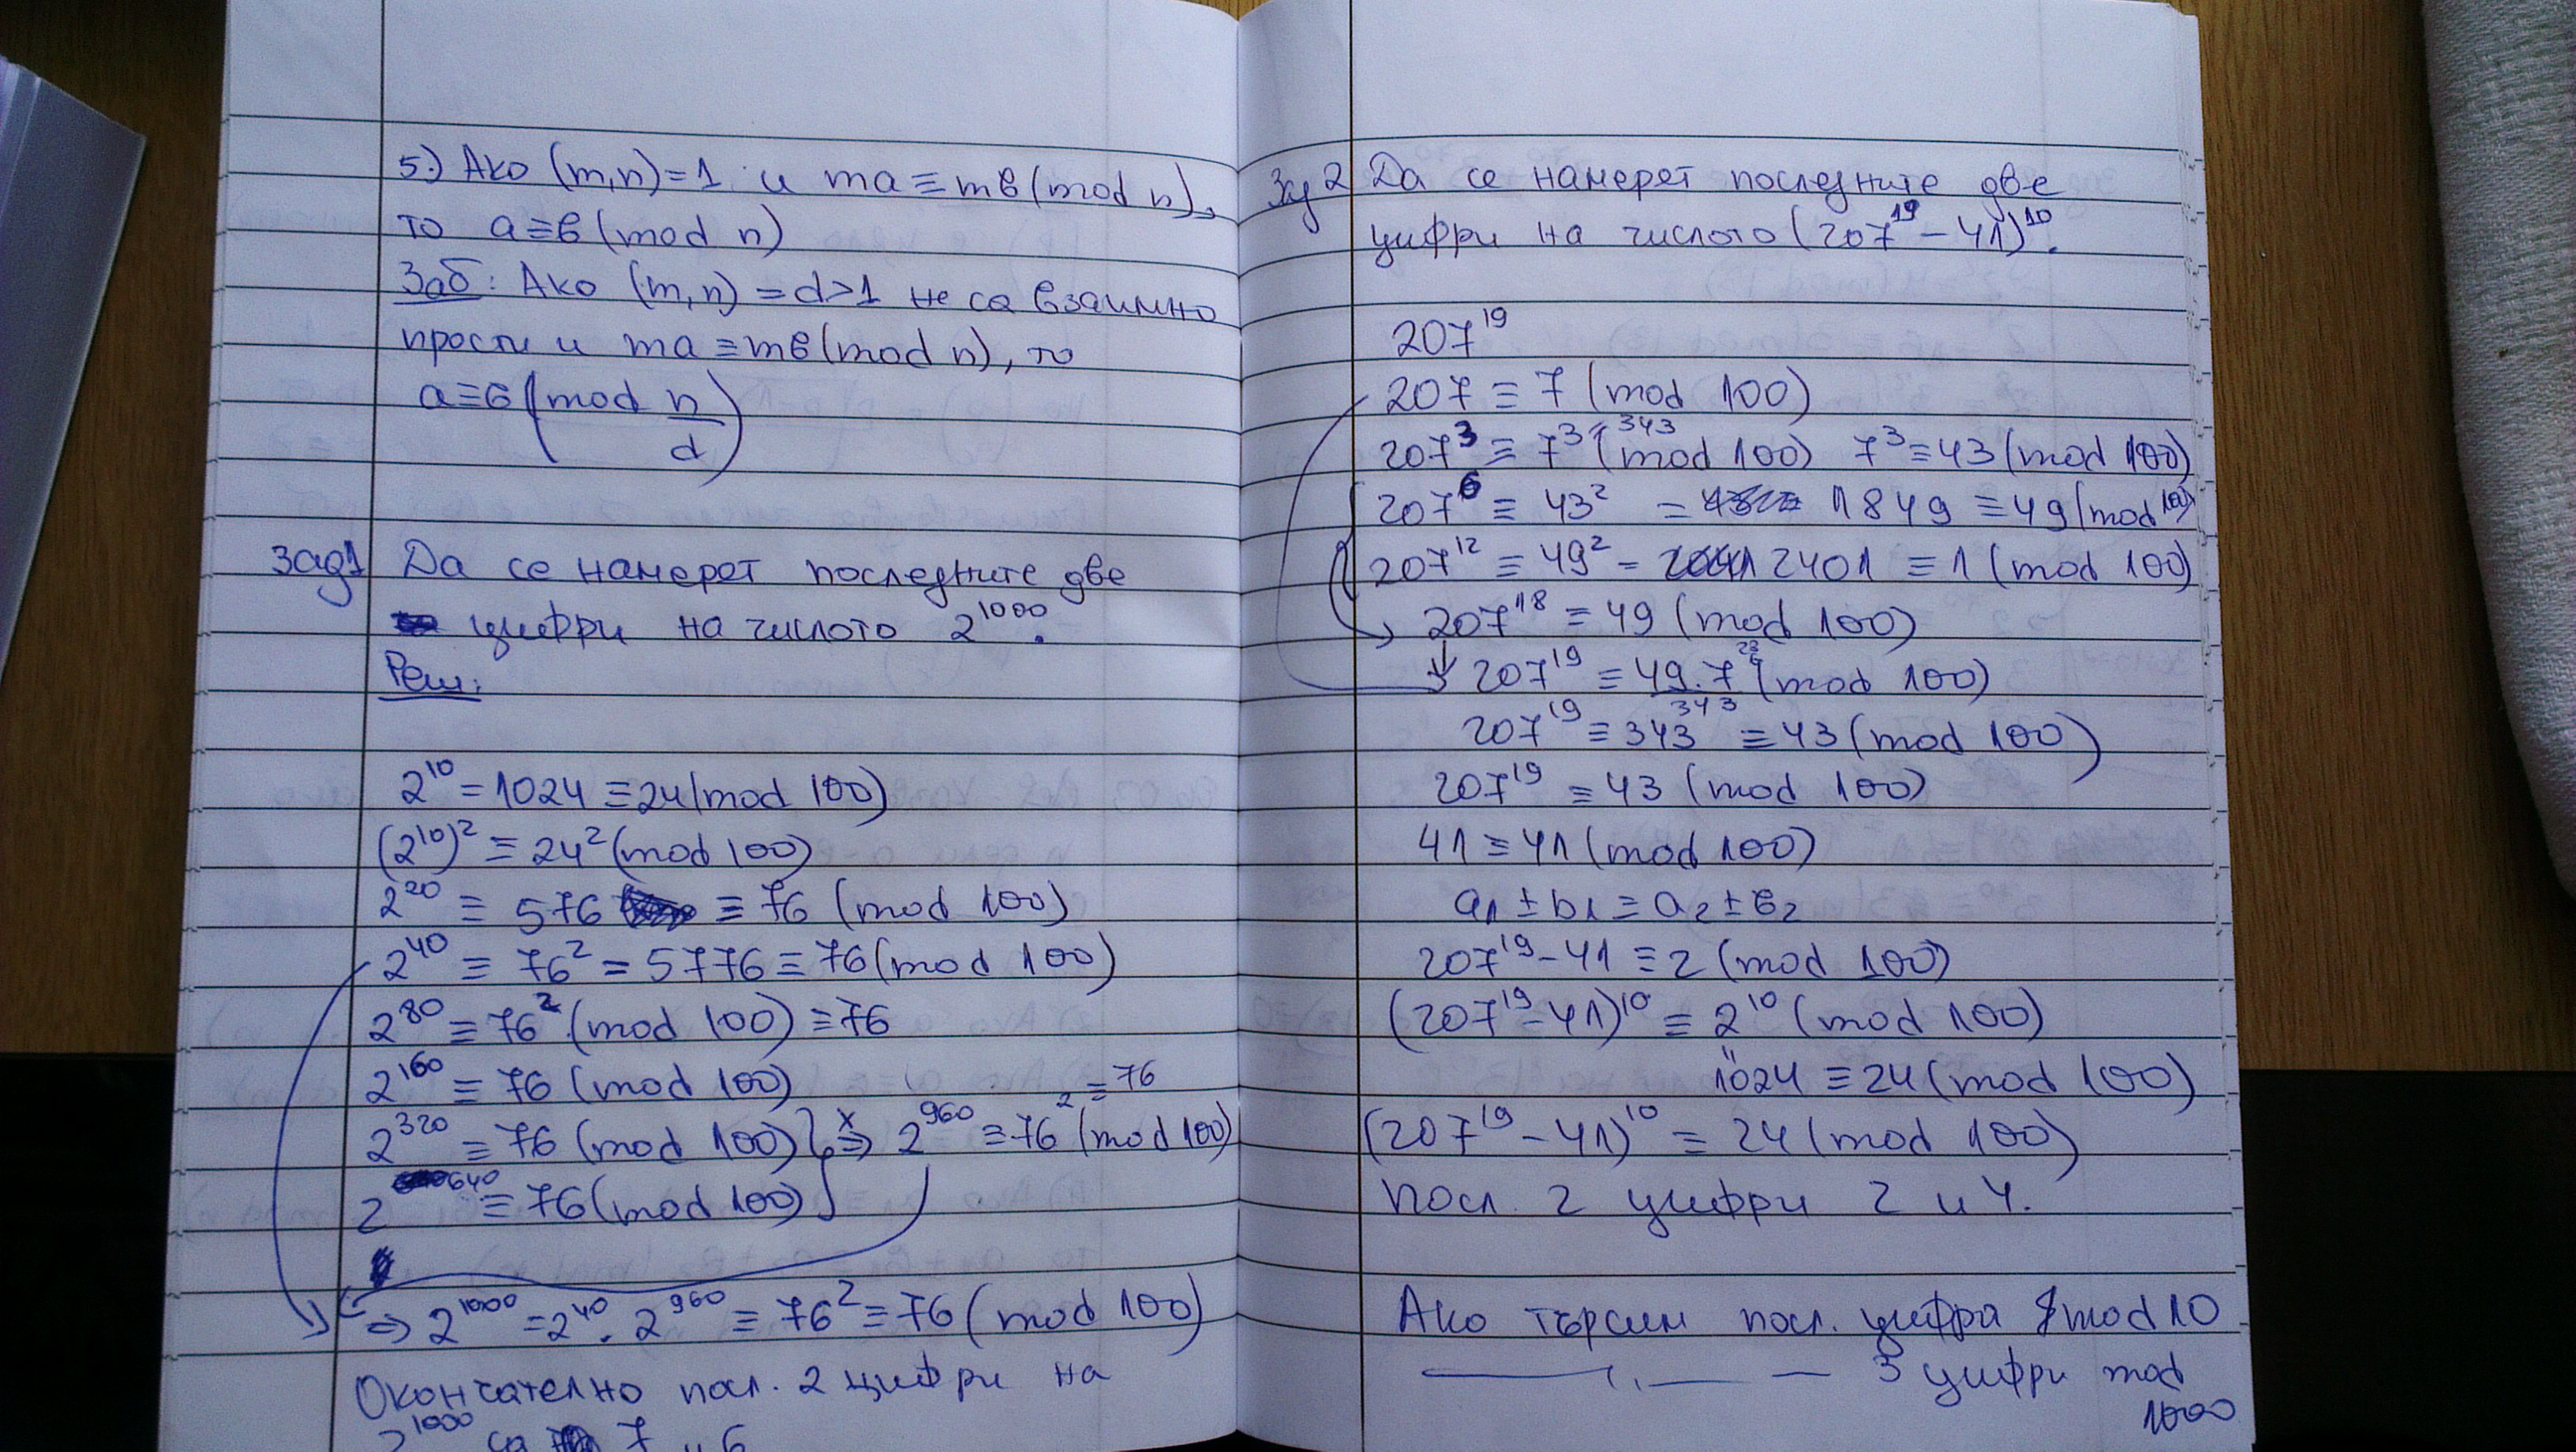 5.) Ако (m,n)=1 и ma≡mв(mod n),
то a≡в(mod n)
Заб: Ако (m,n)=d>1 не са взаимно
прости и ma≡mв(mod n), то
a≡в(mod n/d)
Зад1 Да се намерят последните две
цифри на числото 2^1000.
Реш:
2^10=1024≡24(mod 100)
(2^10)^2≡24^2(mod 100)
2^20≡576≡76(mod 100)
2^40≡76^2=5776≡76(mod 100)
2^80≡76^2(mod 100)≡76
2^160≡76(mod 100)
2^320≡76(mod 100) x ⇒ 2^960≡76^2(mod 100) ≡76
2^640≡76(mod 100)
⇒2^1000=2^40.2^960≡76^2≡76(mod 100)
Окончателно посл. 2 цифри на
2^1000 са 7 и 6
Зад 2 Да се намерят последните две
цифри на числото (207^19-41)^10.
207^19
207≡7(mod 100)
343
207^3≡7^3(mod 100) 7^3≡43(mod 100)
207^6≡43^2=1849≡49(mod 100)
207^12≡49^2=2401≡1(mod 100)
207^18≡49(mod 100)
207^19≡49.7(mod 100)
343
207^19≡343≡43(mod 100)
207^19≡43(mod 100)
41≡41(mod 100)
a1±b1≡a2±в2
207^19-41≡2(mod 100)
(207^19-41)^10≡2^10(mod 100)
"
1024≡24(mod 100)
(207^19-41)^10≡24(mod 100)
посл. 2 цифри 2 и 4.
Ако търсим посл. цифра mod 10
—— " —— 3 цифри mod
1000